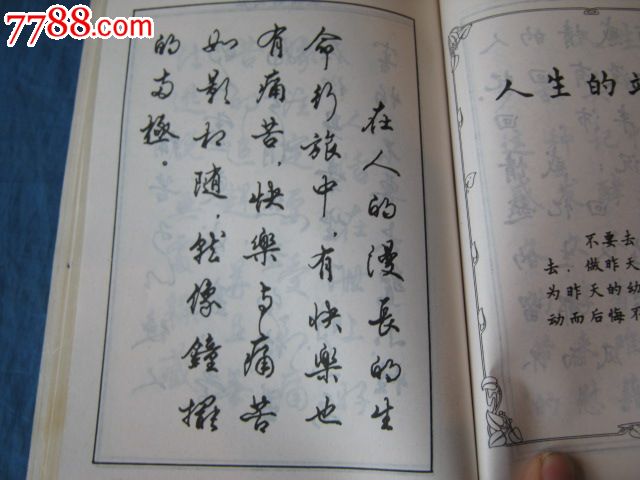 7788.com
在人的漫長的生
命行旅中，有快樂也
有痛苦，快樂与痛苦
如影相随，就像鐘擺
的两極。
人生的
不要去
去．做昨天
为昨天的幼
动而后悔不